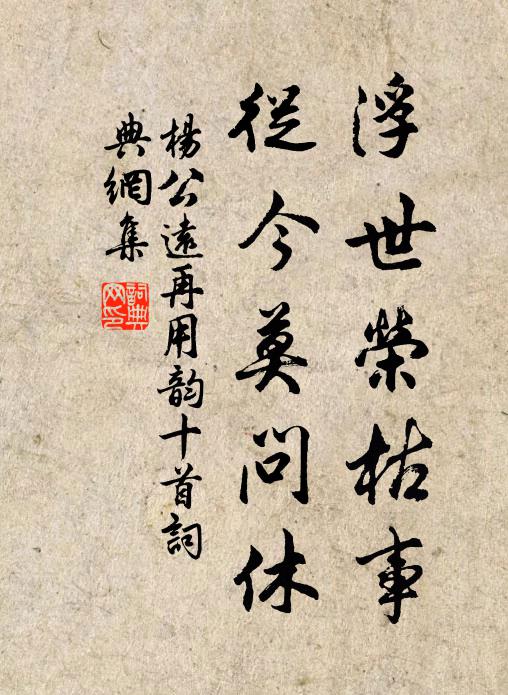 浮世榮枯事
從今莫問休
楊公遠再用韵十首詞
典網集
詞典網印